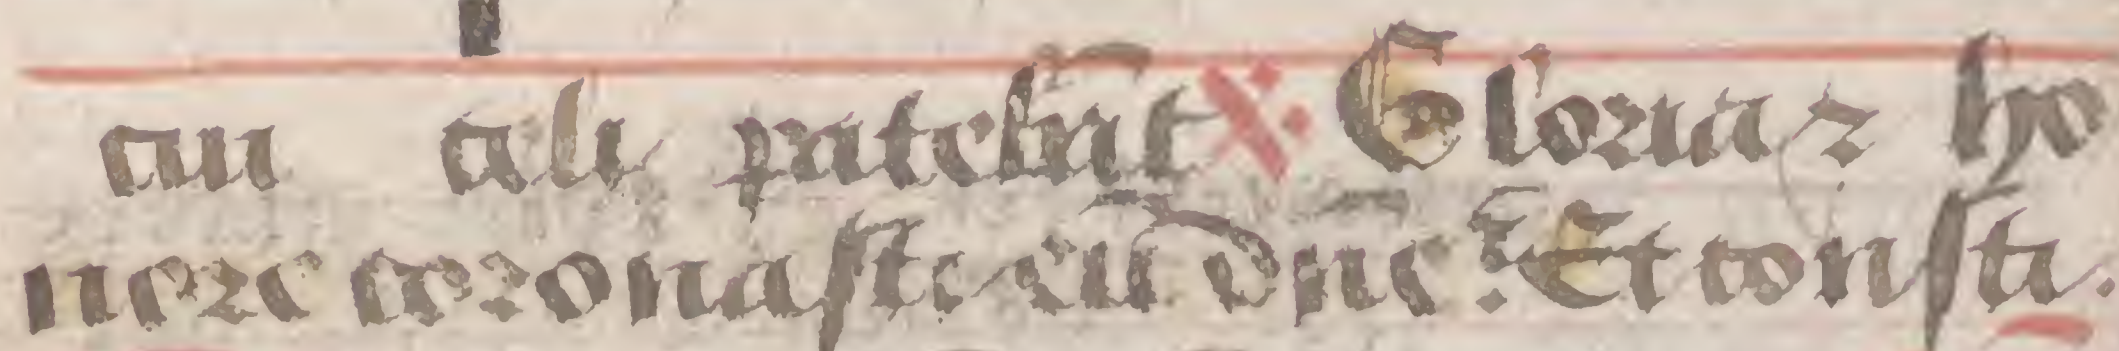 cui ali patebũt ℟ Gloria ⁊ ho
nore coronasti eū dñe : Et consti .